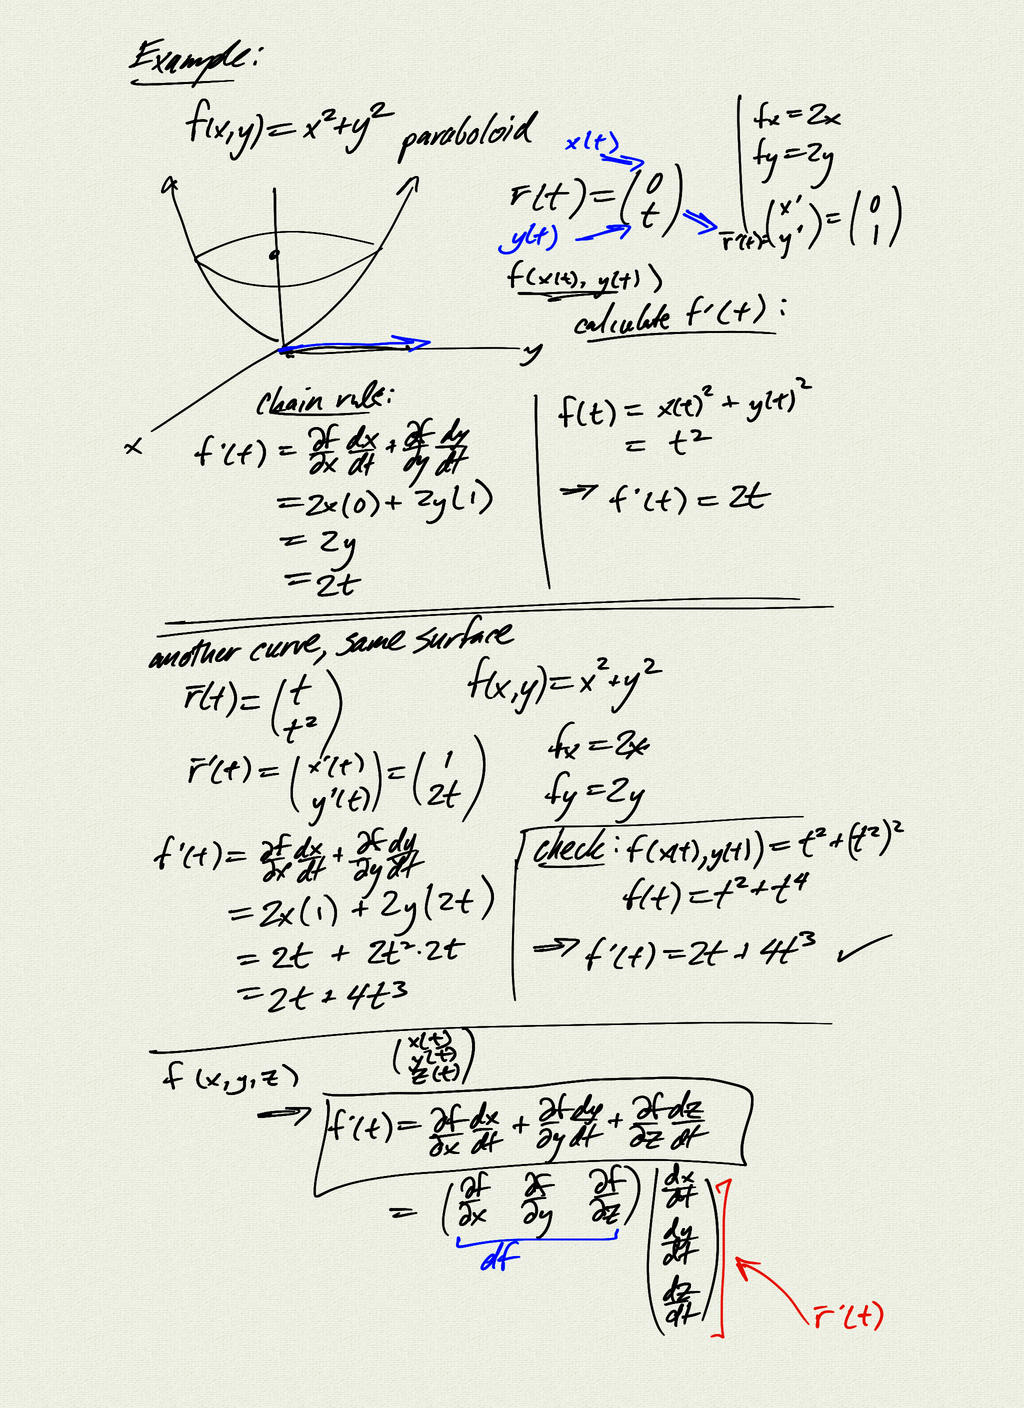 Example:
f(x,y) = x²+y² paraboloid
x(t)
r̄(t) = (0 t)
y(t)
fx = 2x
fy = 2y
r̄'(t) = (x' y') = (0 1)
f(x(t), y(t))
calculate f'(t):
y
x
chain rule:
f'(t) = ∂f/∂x dx/dt + ∂f/∂y dy/dt
= 2x(0) + 2y(1)
= 2y
= 2t
f(t) = x(t)² + y(t)²
= t²
⇒ f'(t) = 2t
another curve, same surface
r̄(t) = (t t²)
f(x,y) = x²+y²
r̄'(t) = (x'(t) y'(t)) = (1 2t)
fx = 2x
fy = 2y
f'(t) = ∂f/∂x dx/dt + ∂f/∂y dy/dt
= 2x(1) + 2y(2t)
= 2t + 2t²·2t
= 2t + 4t³
check: f(x(t), y(t)) = t² + (t²)²
f(t) = t² + t⁴
⇒ f'(t) = 2t + 4t³ ✓
f(x,y,z) (x(t) y(t) z(t))
⇒ f'(t) = ∂f/∂x dx/dt + ∂f/∂y dy/dt + ∂f/∂z dz/dt
= (∂f/∂x ∂f/∂y ∂f/∂z) (dx/dt dy/dt dz/dt)
df
r̄'(t)